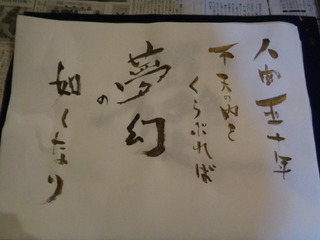 人間五十年
下天の内を
くらぶれば
夢幻
の
如くなり